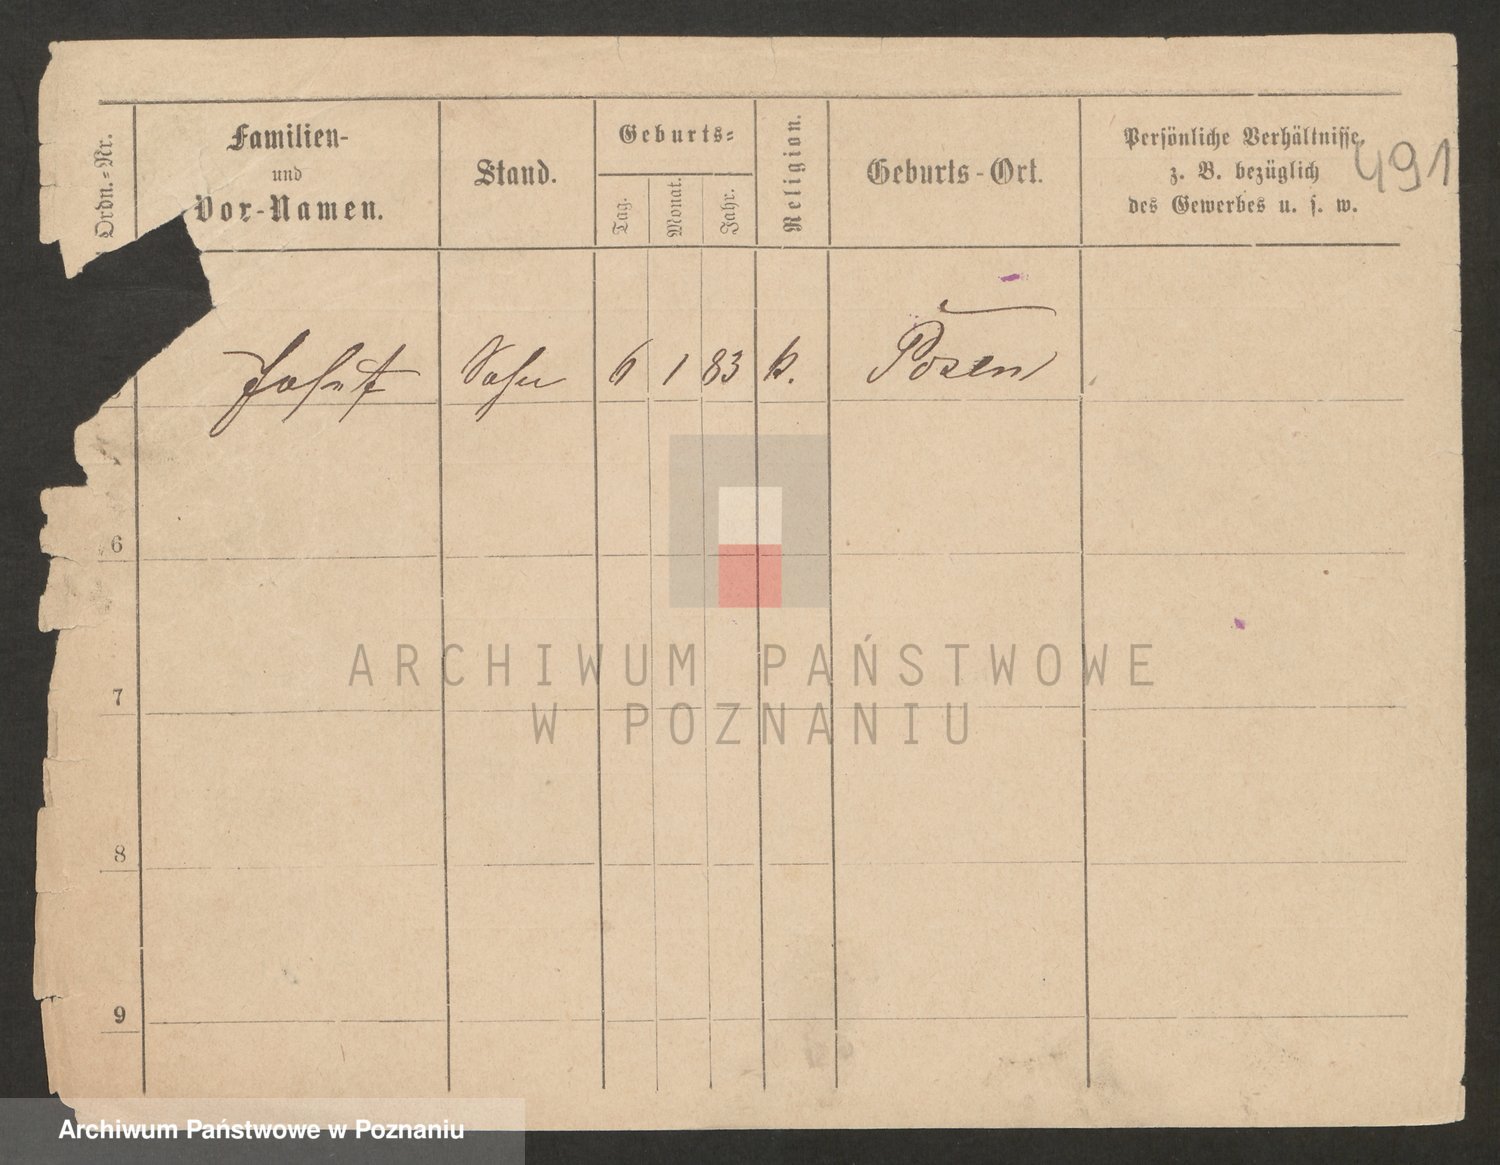 Ordn.-Nr.
Familien-
und
Vor-Namen.
Stand.
Geburts-
Tag.
Monat.
Jahr.
Religion.
Geburts-Ort.
Persönliche Verhältnisse,
z. B. bezüglich
des Gewerbes u. s. w.
491
Sohn 6 1 83 k. Posen
6
7
8
9
ARCHIWUM PAŃSTWOWE
W POZNANIU
Archiwum Państwowe w Poznaniu